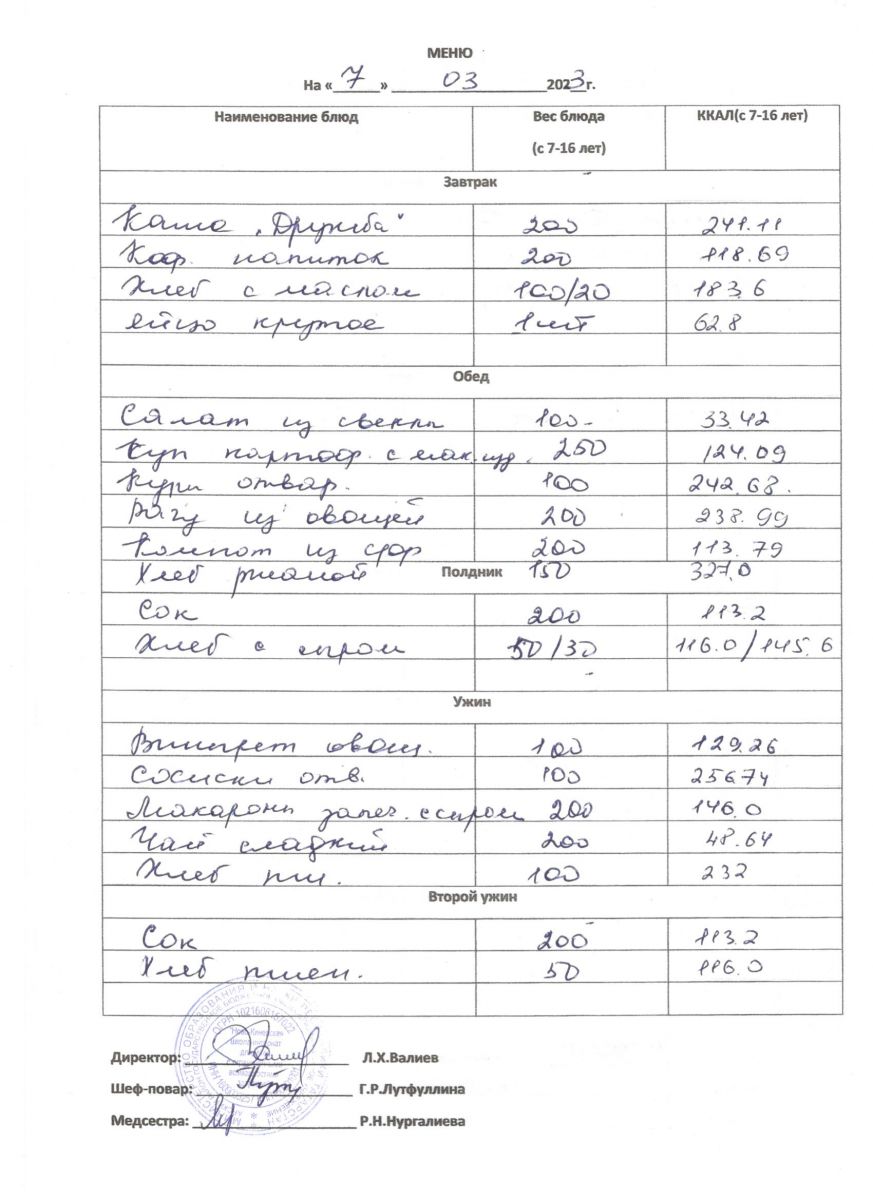 МЕНЮ
На «7» 03 2023г.
Наименование блюд Вес блюда (с 7-16 лет) ККАЛ(с 7-16 лет)
Завтрак
Каша "Дружба" 200 241.11
Коф. напиток 200 118.69
Хлеб с маслом 100/20 183,6
яйцо крутое 1шт 62.8
Обед
Салат из свеклы 100- 33.42
Суп картоф. с мак.изд. 250 124.09
Куры отвар. 100 242.68.
Рагу из овощей 200 238.99
Компот из сфр 200 113.79
Хлеб ржаной 150 327,0
Полдник
Сок 200 113.2
Хлеб с сыром 50/30 116.0/145.6
Ужин
Винегрет овощ. 100 129.26
Сосиски отв. 100 256.74
Макароны запеч. с сыром 200 146.0
Чай сладкий 200 48.64
Хлеб пш. 100 232
Второй ужин
Сок 200 113.2
Хлеб пшен. 50 116.0
ОГРН 1021606157022
Директор: Л.Х.Валиев
Шеф-повар: Г.Р.Лутфуллина
Медсестра: Р.Н.Нургалиева